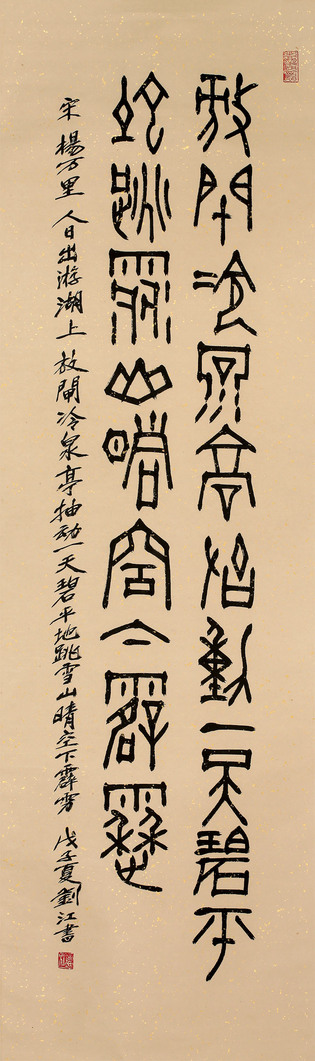 放閘冷泉亭抽動一天碧平
地跳雪山晴空下霹靂
宋楊万里人日出游湖上放閘冷泉亭抽動一天碧平地跳雪山晴空下霹雳戊子夏劉江書